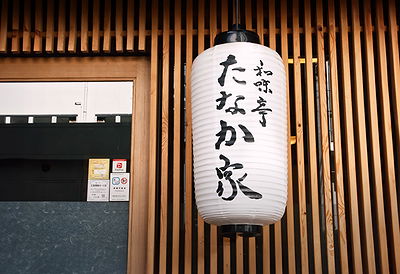 和味亭
たなか家